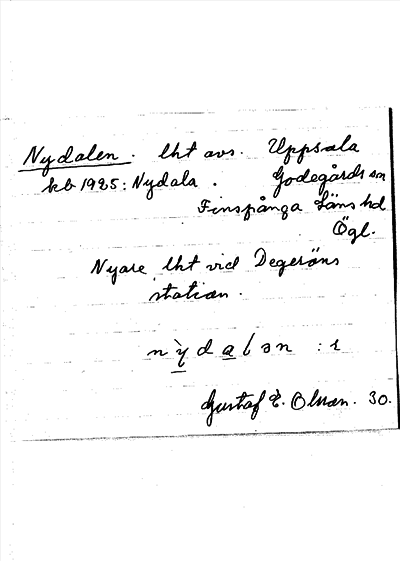 Nydalen. lht avs. Uppsala
kb 1925: Nydala. Godegårds sn
Finspånga läns hd
Ögl.
Nyare lht vid Degeröns
station.
nỳdalən : 1
Gustaf E. Olsson. 30.